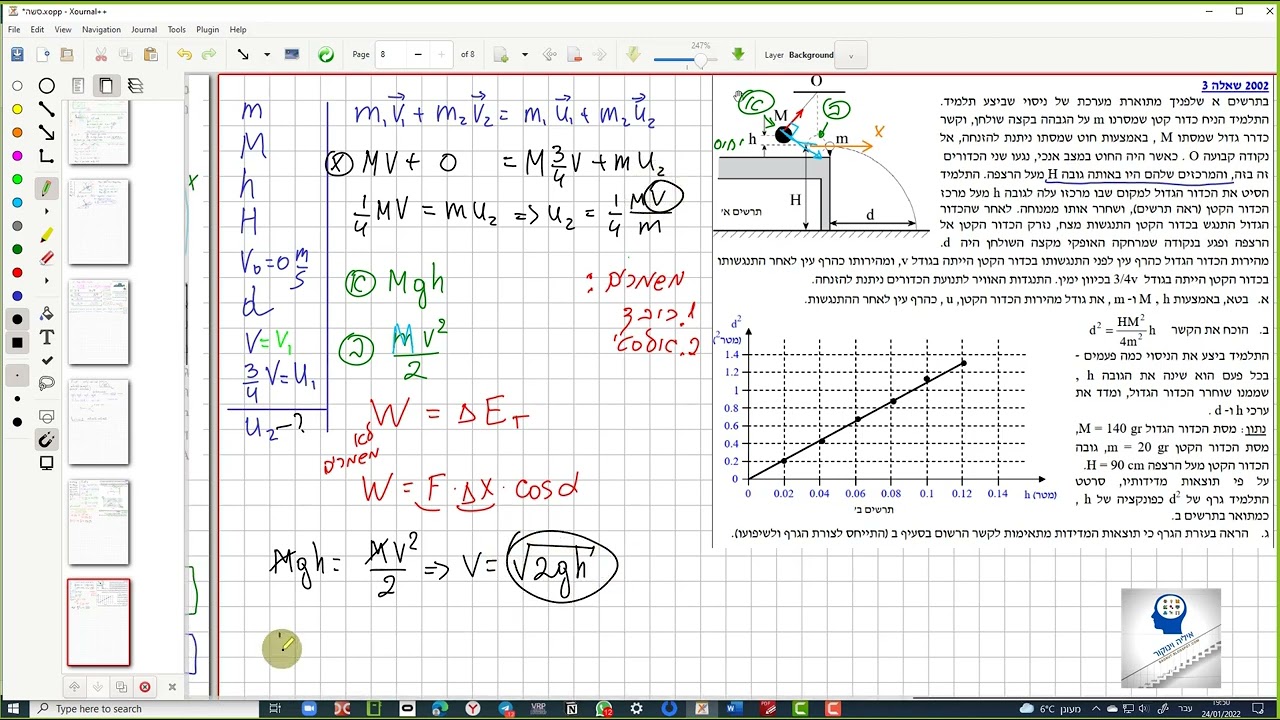 *סשה.xopp - Xournal++
File Edit View Navigation Journal Tools Plugin Help
Page 8 of 8 247% Layer Background
m
M
h
H
V₀=0 m/s
d
V=V₁
3/4 V=U₁
U₂ -?
m₁V₁ + m₂V₂ = m₁U₁ + m₂U₂
(x) MV + 0 = M 3/4 V + mU₂
1/4 MV = mU₂ => U₂ = 1/4 MV/m
(א) Mgh
(ב) MV²/2
משמרים:
1. כובד
W = ΔE_T
לא
משמרים
W = F · ΔX · cosα
Mgh = MV²/2 => V = √2gh
2002 שאלה 3
בתרשים א שלפניך מתוארת מערכת של ניסוי שביצע תלמיד.
התלמיד הניח כדור קטן שמסתו m על הגבהה בקצה שולחן, וקשר
כדור גדול שמסתו M , באמצעות חוט שמסתו ניתנת להזנחה, אל
נקודה קבועה O . כאשר היה החוט במצב אנכי, נגעו שני הכדורים
זה בזה, והמרכזים שלהם היו באותה גובה H מעל הרצפה. התלמיד
הסיט את הכדור הגדול למקום שבו מרכזו עלה לגובה h מעל מרכז
הכדור הקטן (ראה תרשים), ושחרר אותו ממנוחה. לאחר שהכדור
הגדול התנגש בכדור הקטן התנגשות מצח, נזרק הכדור הקטן אל
הרצפה ופגע בנקודה שמרחקה האופקי מקצה השולחן היה d.
מהירות הכדור הגדול כהרף עין לפני התנגשותו בכדור הקטן הייתה בגודל v, ומהירותו כהרף עין לאחר התנגשותו
בכדור הקטן הייתה בגודל 3/4v בכיוון ימין. התנגדות האוויר לתנועת הכדורים ניתנת להזנחה.
א. בטא, באמצעות M , h ו- m, את גודל מהירות הכדור הקטן, u , כהרף עין לאחר ההתנגשות.
ב. הוכח את הקשר d² = HM²/4m² h
התלמיד ביצע את הניסוי כמה פעמים -
בכל פעם הוא שינה את הגובה h ,
שממנו שוחרר הכדור הגדול, ומדד את
ערכי h ו- d .
נתון: מסת הכדור הגדול M = 140 gr,
מסת הכדור הקטן m = 20 gr, גובה
הכדור הקטן מעל הרצפה H = 90 cm.
על פי תוצאות מדידותיו, סרטט
התלמיד גרף של d² כפונקציה של h ,
כמתואר בתרשים ב.
ג. הראה בעזרת הגרף כי תוצאות המדידות מתאימות לקשר הרשום בסעיף ב (התייחס לצורת הגרף ולשיפועו).
O
(א) M (ב)
h m x
H
d
תרשים א'
d²
(מטר²)
1.4
1.2
1
0.8
0.6
0.4
0.2
0
0 0.02 0.04 0.06 0.08 0.1 0.12 0.14 h (מטר)
תרשים ב'
איליה וינוקור
Type here to search
6°C מעונן עבר 19:50
24/01/2022